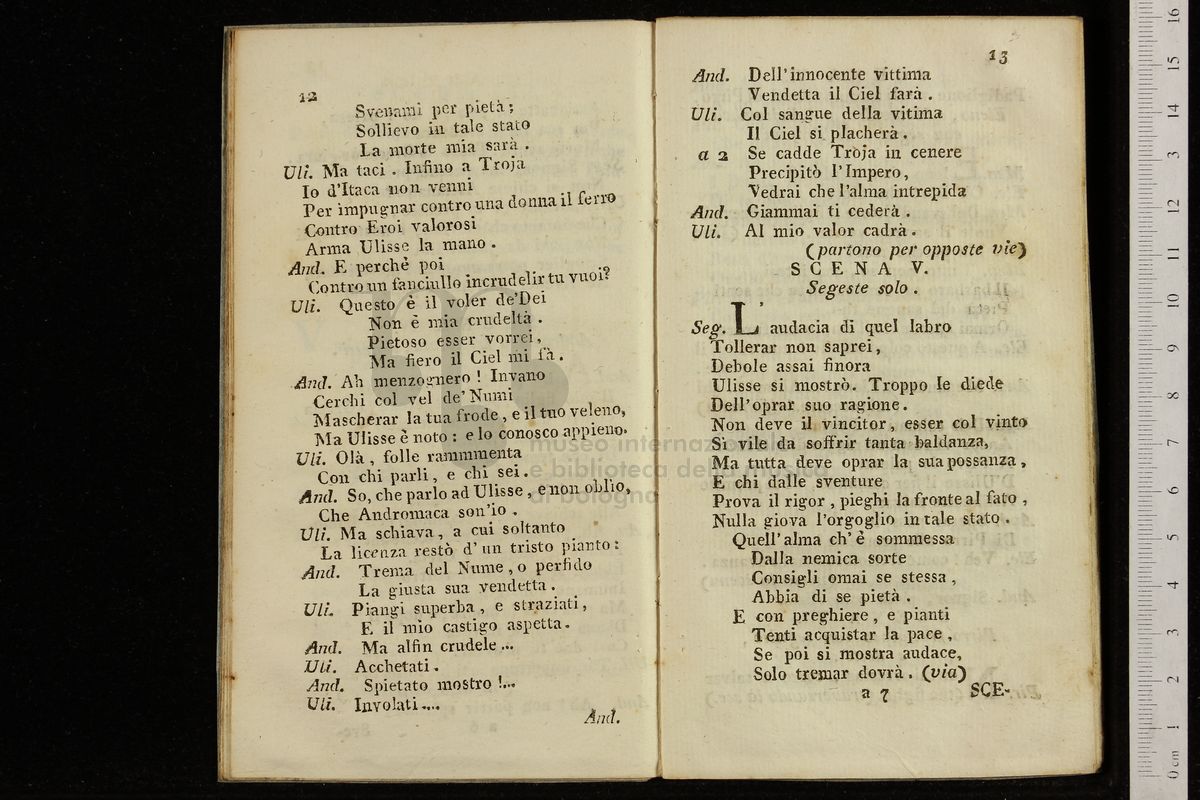 12
Svenami per pietà;
Sollievo in tale stato
La morte mia sarà .
Uli. Ma taci . Infino a Troja
Io d'Itaca non venni
Per impugnar contro una donna il ferro
Contro Eroi valorosi
Arma Ulisse la mano .
And. E perchè poi
Contro un fanciullo incrudelir tu vuoi?
Uli. Questo è il voler de'Dei
Non è mia crudeltà .
Pietoso esser vorrei,
Ma fiero il Ciel mi fà.
And. Ah menzognero ! Invano
Cerchi col vel de' Numi
Mascherar la tua frode , e il tuo veleno,
Ma Ulisse è noto : e lo conosco appieno.
Uli. Olà , folle rammmenta
Con chi parli, e chi sei.
And. So, che parlo ad Ulisse, e non oblìo,
Che Andromaca son'io .
Uli. Ma schiava, a cui soltanto
La licenza restò d' un tristo pianto:
And. Trema del Nume , o perfido
La giusta sua vendetta .
Uli. Piangi superba , e straziati,
E il mio castigo aspetta.
And. Ma alfin crudele ...
Uli. Acchetati.
And. Spietato mostro !...
Uli. Involati....
And.
13
And. Dell'innocente vittima
Vendetta il Ciel farà .
Uli. Col sangue della vitima
Il Ciel si placherà.
a 2 Se cadde Troja in cenere
Precipitò l'Impero,
Vedrai che l'alma intrepida
And. Giammai ti cederà .
Uli. Al mio valor cadrà.
(partono per opposte vie)
SCENA V.
Segeste solo .
Seg. L' audacia di quel labro
Tollerar non saprei,
Debole assai finora
Ulisse si mostrò. Troppo le diede
Dell'oprar suo ragione.
Non deve il vincitor, esser col vinto
Sì vile da soffrir tanta baldanza,
Ma tutta deve oprar la sua possanza,
E chi dalle sventure
Prova il rigor , pieghi la fronte al fato ,
Nulla giova l'orgoglio in tale stato .
Quell'alma ch' è sommessa
Dalla nemica sorte
Consigli omai se stessa ,
Abbia di se pietà .
E con preghiere , e pianti
Tenti acquistar la pace ,
Se poi si mostra audace,
Solo tremar dovrà. (via)
a 7 SCE-
museo internazionale
e biblioteca della musica
di bologna
0 cm 1 2 3 4 5 6 7 8 9 10 11 12 13 14 15 16